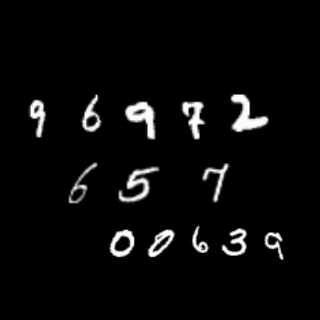 9 6 9 7 2
6 5 7
0 0 6 3 9